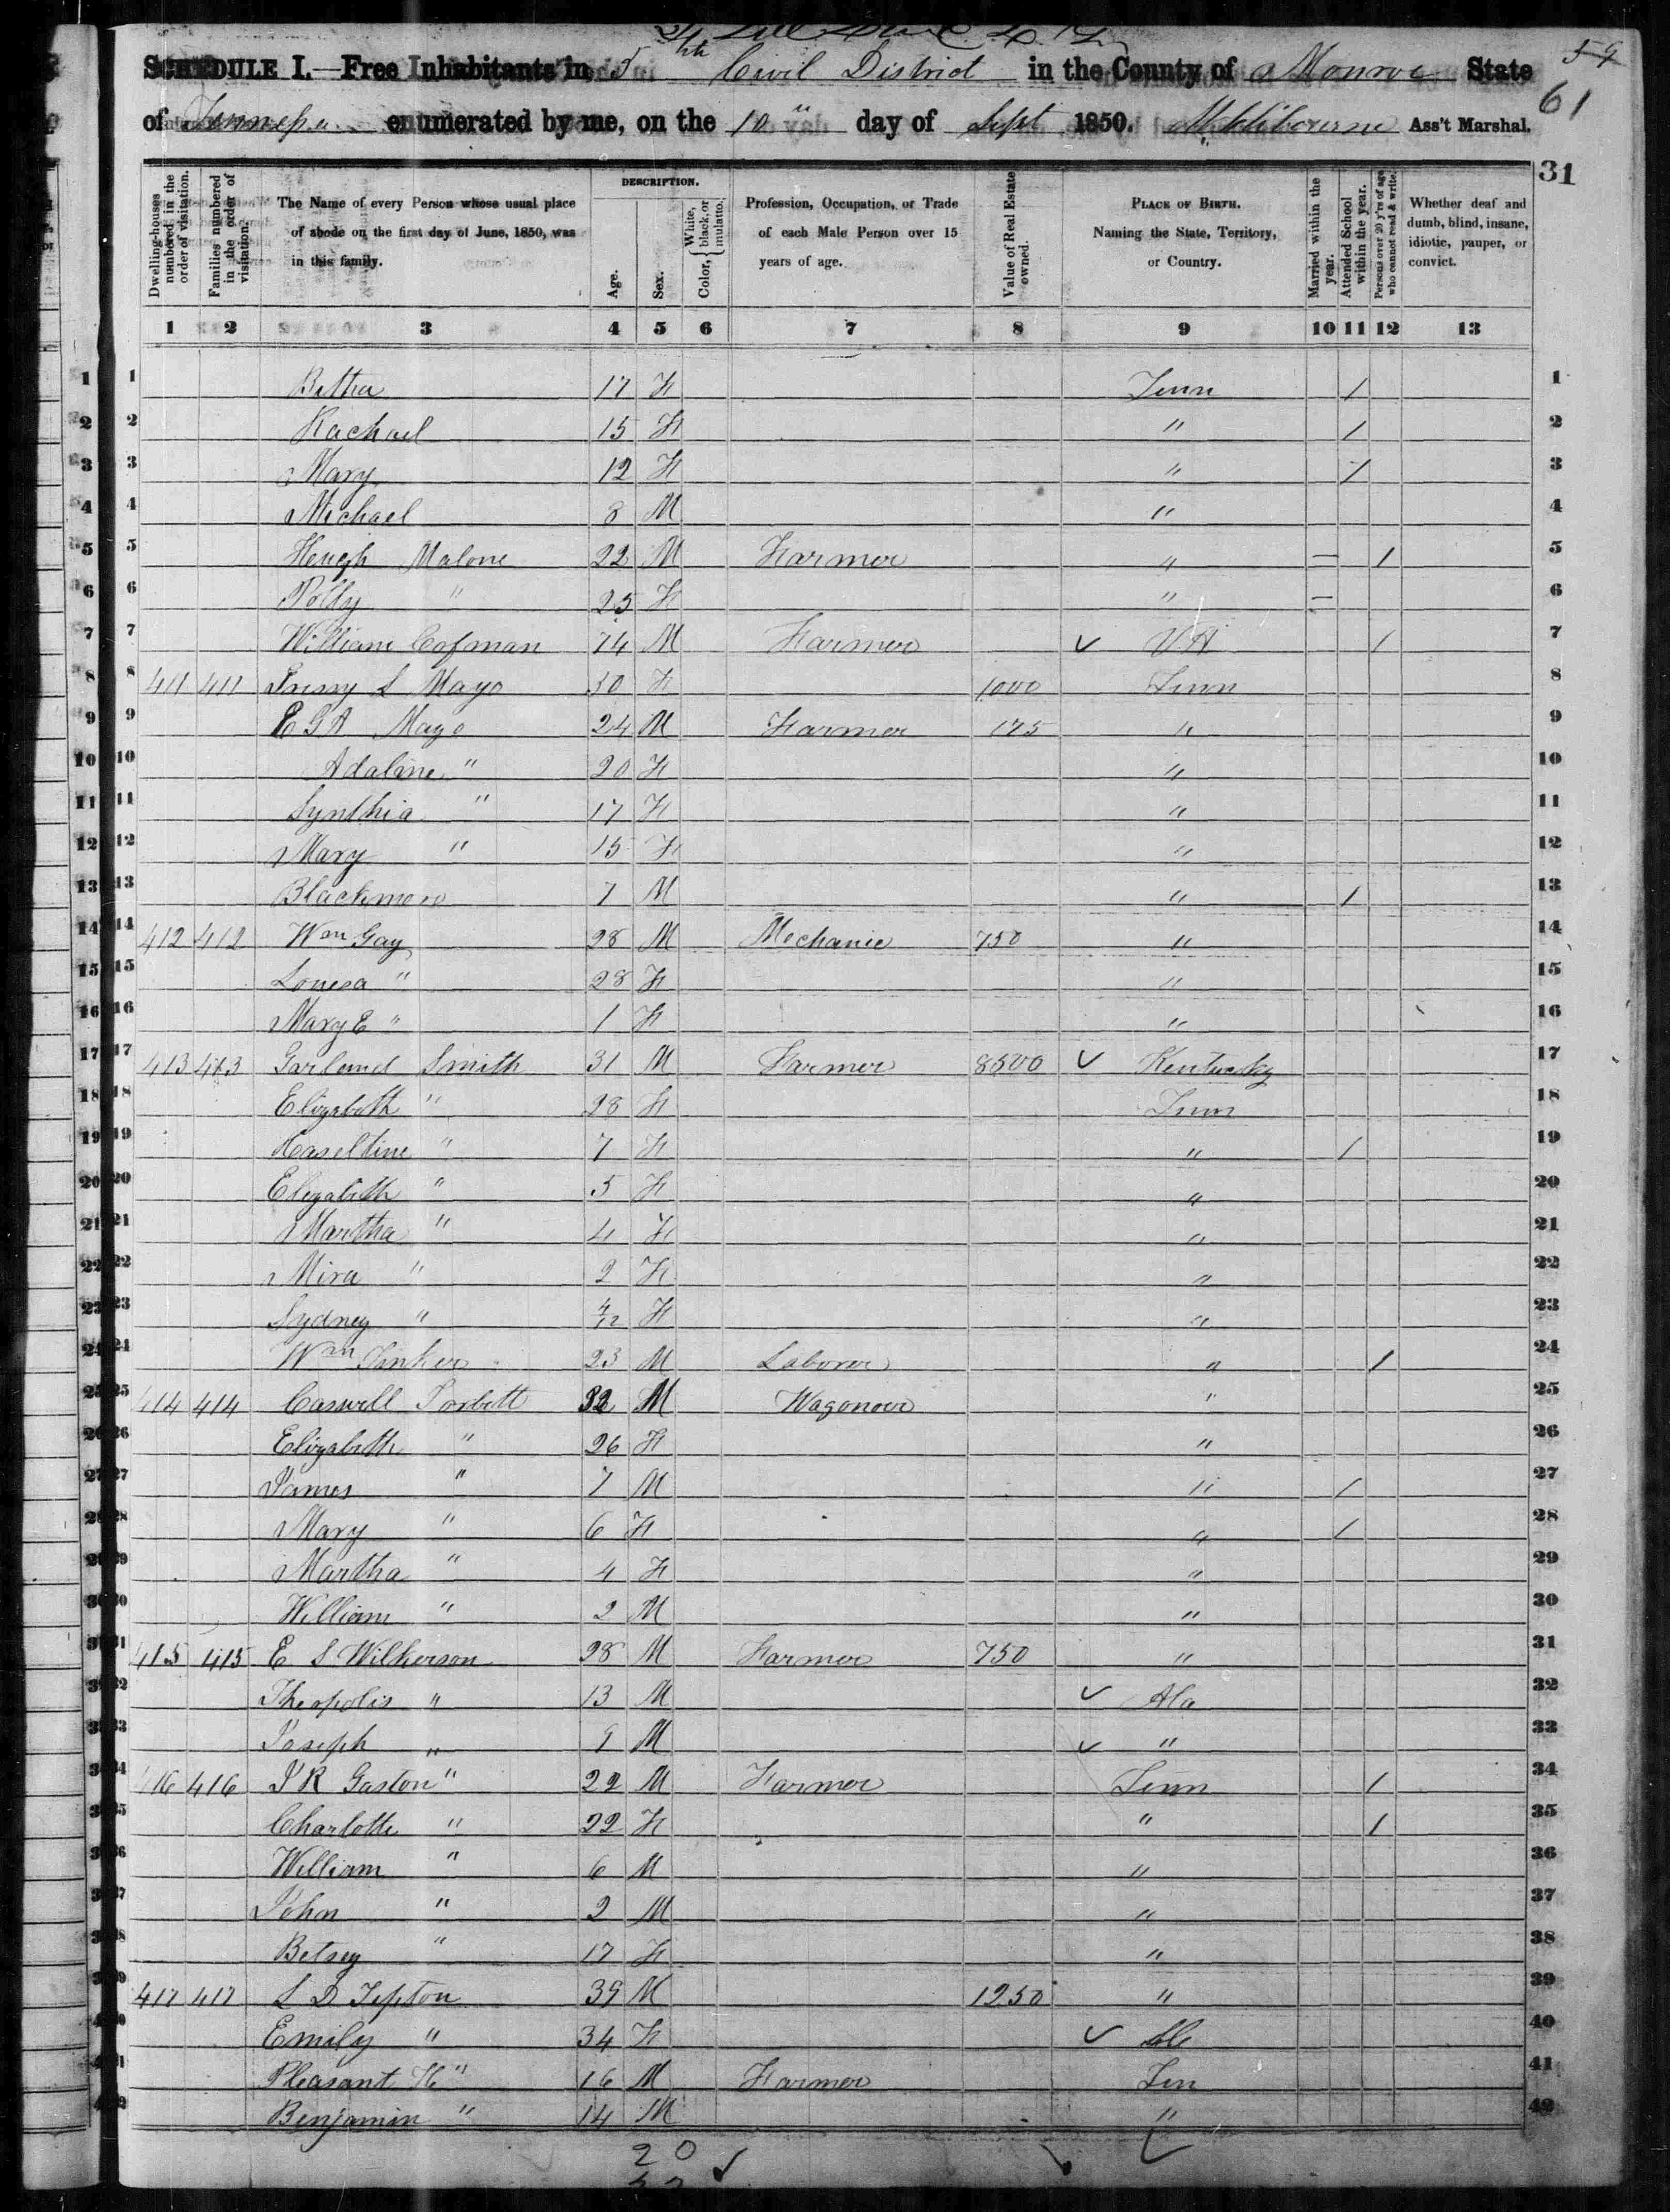 SCHEDULE I.—Free Inhabitants in 5th Civil District in the County of Monroe State 59
of Tennessee enumerated by me, on the 10" day of Sept 1850. Ass't Marshal. 61
31
Dwelling-houses numbered in the order of visitation.
Families numbered in the order of visitation.
The Name of every Person whose usual place of abode on the first day of June, 1850, was in this family.
DESCRIPTION.
Age.
Sex.
Color, White, black, or mulatto.
Profession, Occupation, or Trade of each Male Person over 15 years of age.
Value of Real Estate owned.
PLACE OF BIRTH. Naming the State, Territory, or Country.
Married within the year.
Attended School within the year.
Persons over 20 y'rs of age who cannot read & write.
Whether deaf and dumb, blind, insane, idiotic, pauper, or convict.
1 2 3 4 5 6 7 8 9 10 11 12 13
1 17 F Tenn / 1
2 Rachael 15 F " / 2
3 Mary 12 F " / 3
4 Michael 8 M " 4
5 Heugh Malone 22 M Farmer " — 1 5
6 Polly " 25 F " — 6
7 William Cofman 74 M Farmer ✓ VA 1 7
8 411 411 L Mayo 50 F 1000 Tenn 8
9 E G A Mayo 24 M Farmer 175 " 9
10 Adaline " 20 F " 10
11 Synthia " 17 F " 11
12 Mary " 15 F " 12
13 Blackmore 7 M " 1 13
14 412 412 Wm Gay 28 M Mechanic 750 " 14
15 Louesa " 28 F " 15
16 Mary E " 1 F " 16
17 413 413 Garland Smith 31 M Farmer 8500 ✓ Kentucky 17
18 Elizabeth " 28 F Tenn 18
19 Haseltine " 7 F " / 19
20 Elizabeth " 5 F " 20
21 Martha " 4 F " 21
22 Mira " 2 F " 22
23 Sydney " 4/12 F " 23
24 Wm Tinker 23 M Laborer " 1 24
25 414 414 Caswell Torbett 32 M Wagoner " 25
26 Elizabeth " 26 F " 26
27 James " 7 M " / 27
28 Mary " 6 F " / 28
29 Martha " 4 F " 29
30 William " 2 M " 30
31 415 415 E S Wilkerson 28 M Farmer 750 " 31
32 Theopolis " 13 M ✓ Ala 32
33 Joseph " 9 M ✓ " 33
34 416 416 J R Gaston " 22 M Farmer Tenn 1 34
35 Charlotte " 22 F " 1 35
36 William " 6 M " 36
37 John " 2 M " 37
38 Betsey " 17 F " 38
39 417 417 L D Tipton 39 M 1250 " 39
40 Emily " 34 F ✓ 40
41 Pleasant H " 16 M Farmer Ten 41
42 Benjamin " 14 M " 42
20 ✓